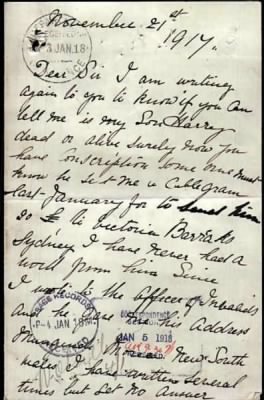 November 21st
1917.
3 JAN.18
Dear Sir I am writing
again to you to know if you can
tell me is my Son Harry
dead or alive surely now you
have Conscription some one must
know he sent me a Cablegram
last January for to send him
20 £ to Victoria Barraks
Sydney I have never had a
word from him Since
I wrote to the Officer of Invalids
and he gave his Address
New South
Wales I have written several
times but Get No Answer
BASE RECORDS
4 JAN 1918
CORRESPONDENCE
JAN 5 1918